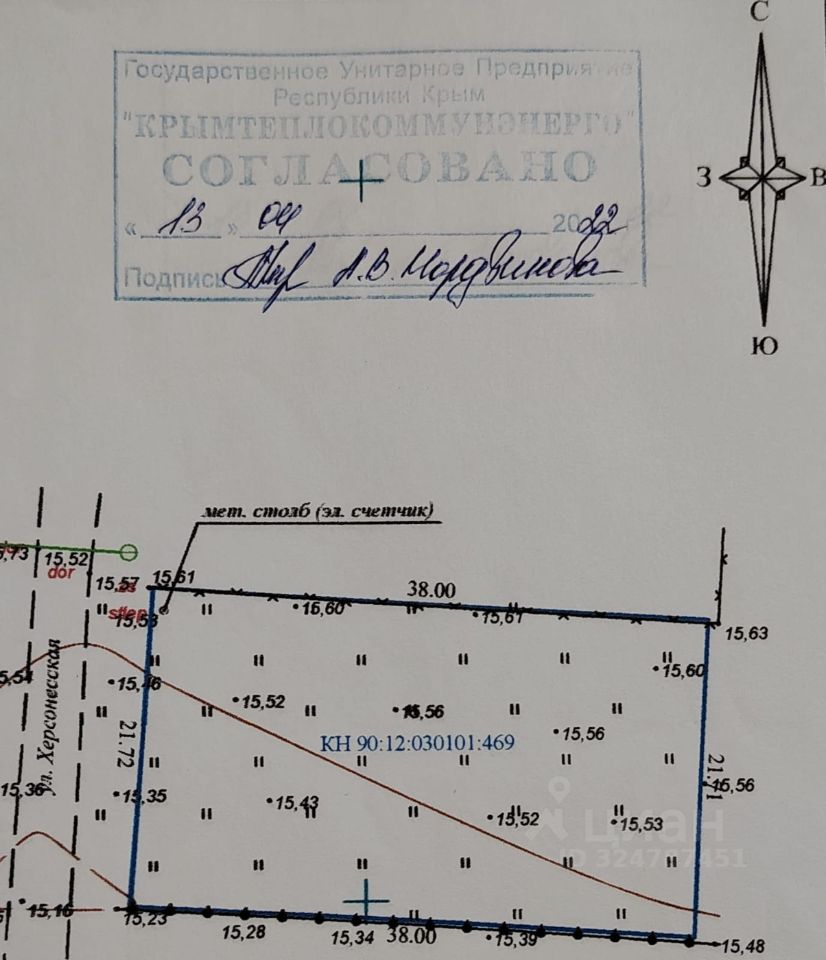 С
Государственное Унитарное Предприятие
Республики Крым
"КРЫМТЕПЛОКОММУНЭНЕРГО"
СОГЛАСОВАНО
З
В
« 13 » 04 2022
Подпись А.В. Мордвинова
Ю
мет. столб (эл. счетчик)
15,52
dor
15,57
15,61
38.00
15,60
15,61
15,63
15,60
ул. Херсонесская
15,46
15,52
15,56
21.72
КН 90:12:030101:469
15,56
21.71
15,56
15,36
15,35
15,43
15,52
15,53
циан
ID 324787451
15,16
15,23
15,28
15,34
38.00
15,39
15,48